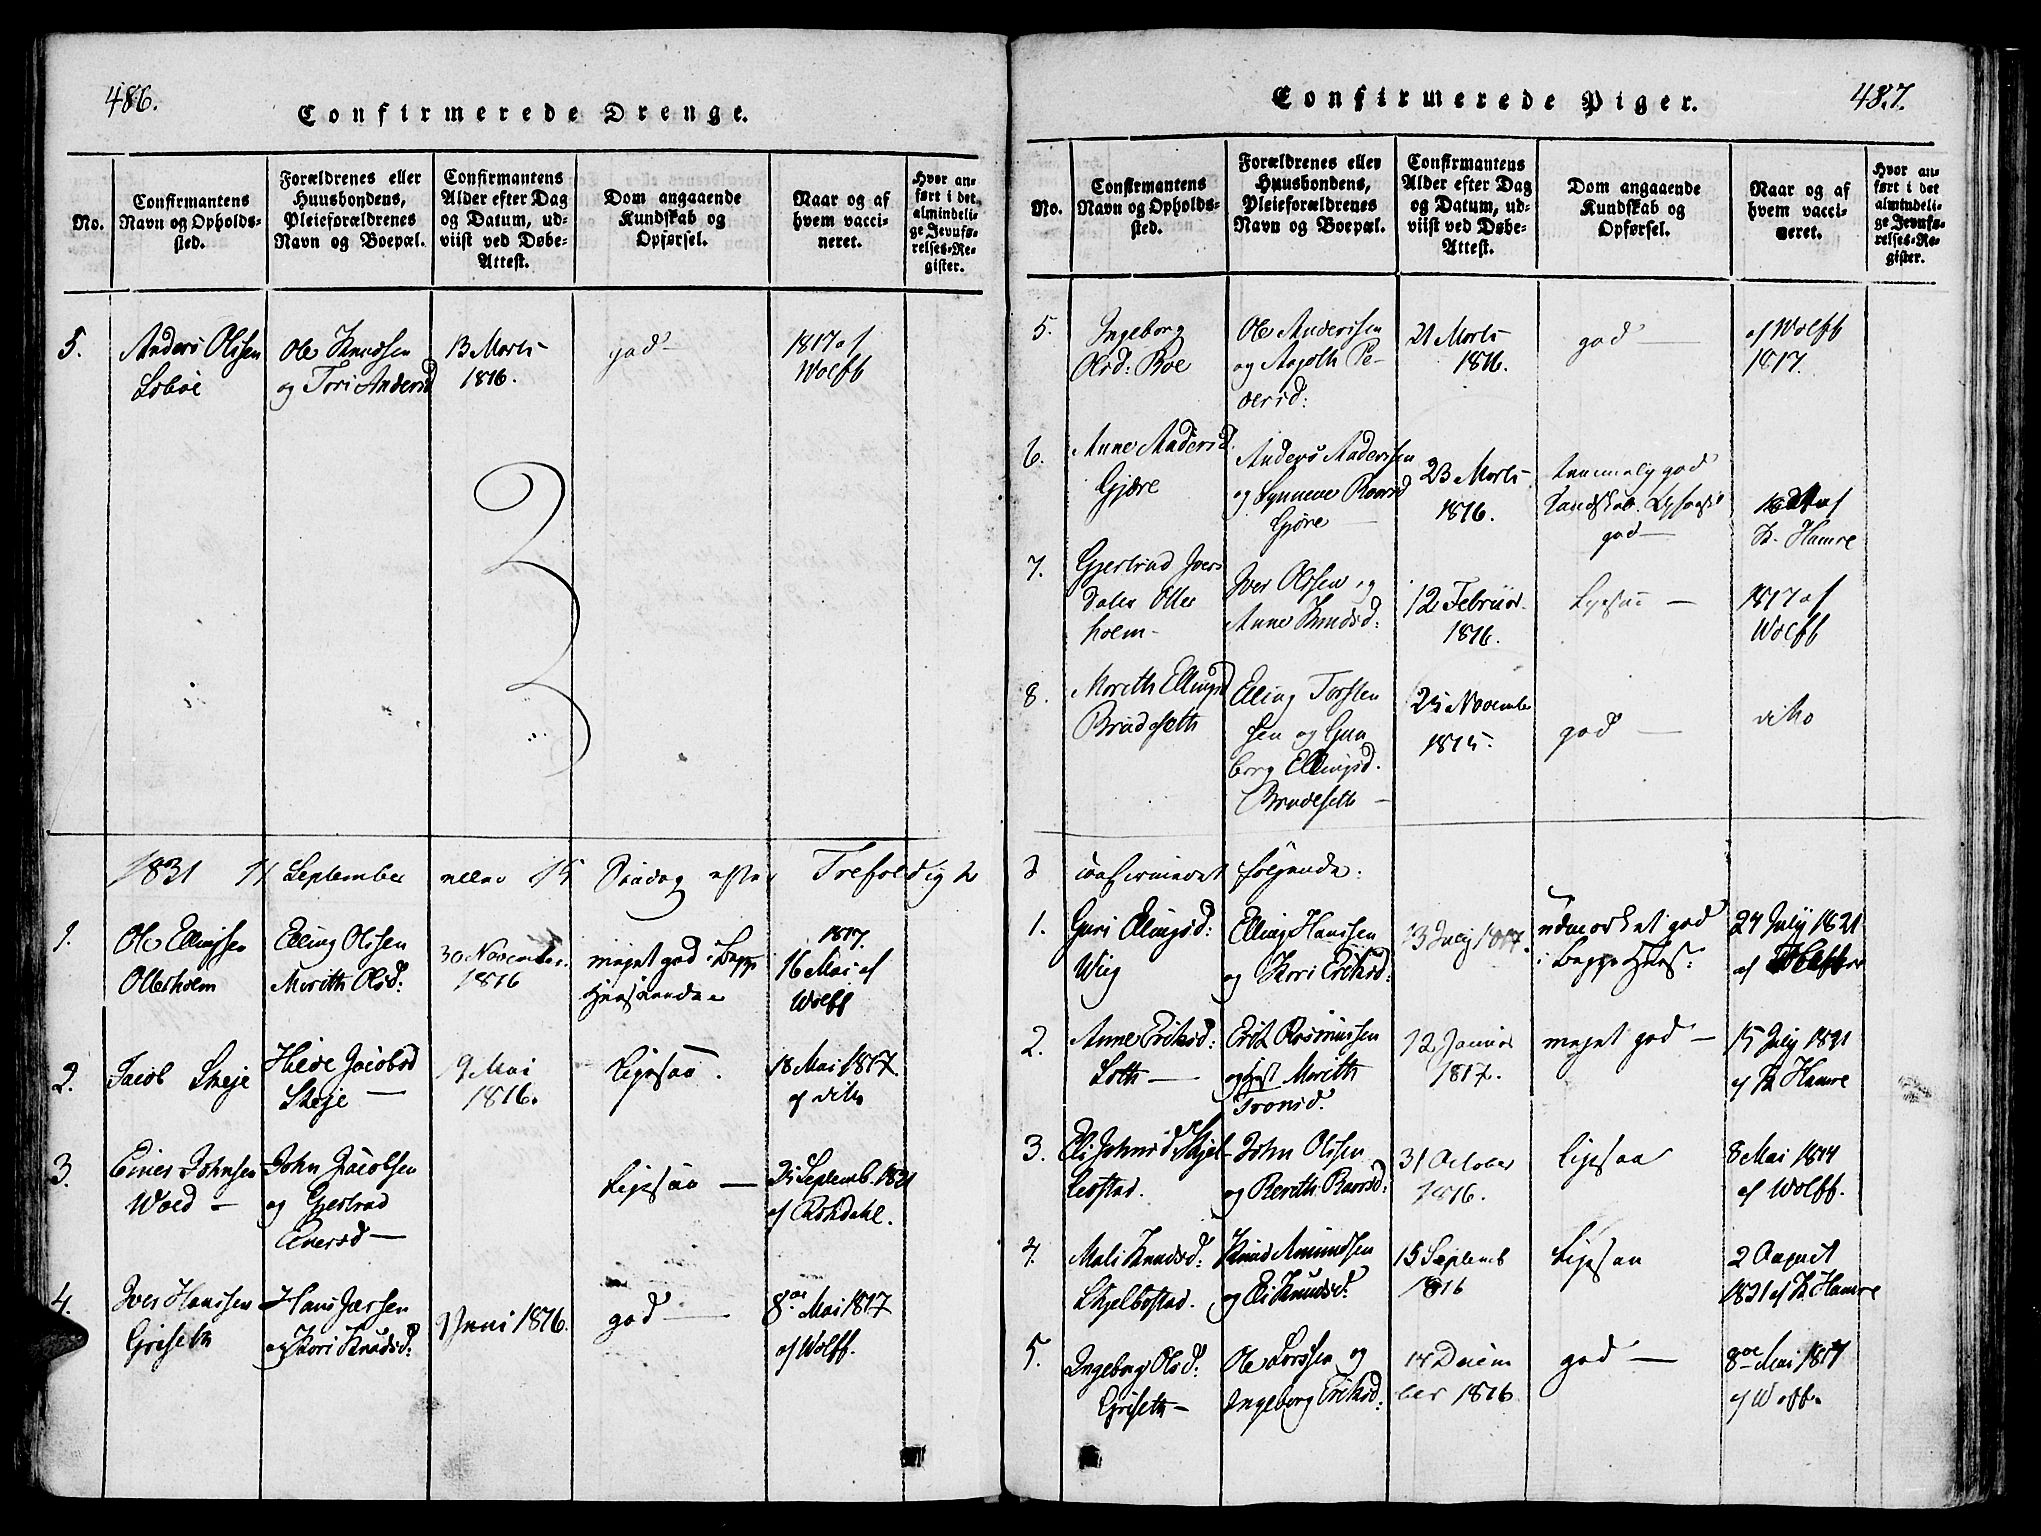 486.
Confirmerede Drenge.
No.
Confirmantens
Navn og Opholds-
sted.
Forældrenes eller
Huusbondens,
Pleieforældrenes
Navn og Boepæl.
Confirmantens
Alder efter Dag
og Datum, ud-
viist ved Døbe-
Attest.
Dom angaaende
Kundskab og
Opførsel.
Naar og af
hvem vacci-
neret.
Hvor an-
ført i det
almindeli-
ge Jevnfø-
relses-Re-
gister.
5.
Anders Olsen
Ole Knudsen
og Tori Andersd
13 Marts
1816.
god
1817 af
Wolff
1831 11 September eller 15 Søndag efter Trefoldighe
1.
Ole Ellingsen
Otterholm
Elling Olsen
Merith Olsd:
30 November
1816
meget god i Begge
Henseender
1817.
16 Mai af
Wolff
2.
Jacob Skeje
Jacobsd
Skeje
9 Mai
1816.
Ligesaa.
18 Mai 1817.
af dito
3.
Einer Johnsen
Wold
John Jacobsen
og Gjertrud
Einersd
Ligesaa
Septemb. 1821
af Roshdahl.
4.
Iver Hansen
Griseth
Hans Larsen
og Kari Knudsd:
Juni 1816.
god
8de Mai 1817
af Wolff.
Confirmerede Piger.
487.
No.
Confirmantens
Navn og Opholds-
sted.
Forældrenes eller
Huusbondens,
Pleieforældrenes
Navn og Boepæl.
Confirmantens
Alder efter Dag
og Datum, ud-
viist ved Døbe-
Attest.
Dom angaaende
Kundskab og
Opførsel.
Naar og af
hvem vacci-
neret.
Hvor an-
ført i det
almindeli-
ge Jevnfø-
relses-Re-
gister.
5.
Ingeborg
Olsd: Boe
Ole Andersen
og Pe-
dersd:
21 Marts
1816.
god
af Wolff
1817.
6.
Anne Andersd.
Gjære
Anders Andersen
og Synneve Roersd
Gjøre
23 Marts
1816.
temmelig god
Kundskab. Opførsel
god
af
K. Hamre
7.
Gjertrud Ivers
datter Otter
holm
Iver Olsen og
Anne Knudsd:
12 Februar
1816.
Ligesaa
1817 af
Wolff
8.
Merith Ellingsd
Brudeseth
Elling Torsten
sen og Gun
borg Ellingsd.
Brudeseth
25 November
1815.
god
dito
confirmeret følgende:
1.
Guri Elingsd:
Wiig
Elling Hansen
og Kari Eriksd:
13 July 1817.
udmærket god
i Begge Hens:
24 July 1821
af
2.
Anne Eriksd:
Soth
Erik Rasmussen
og Merith
Tronsd.
12 Januar
1817.
meget god
15 July 1821
af K Hamre
3.
Eli Johnsd Skjel-
bostad.
John Olsen
og Berith Roersd:
31 October
1816.
Ligesaa
8 Mai 1817
af Wolff.
4.
Mali Knudsd:
Skjelbostad.
Knud Amundsen
og Eli Knudsd.
15 Septemb
1816
Ligesaa
2 August
1821 af K. Hamre
5.
Ingeborg Olsd:
Griseth
Ole Larsen og
Ingeborg Eriksd:
14 Decem
ber 1816.
god
8de Mai 1817
af Wolff.